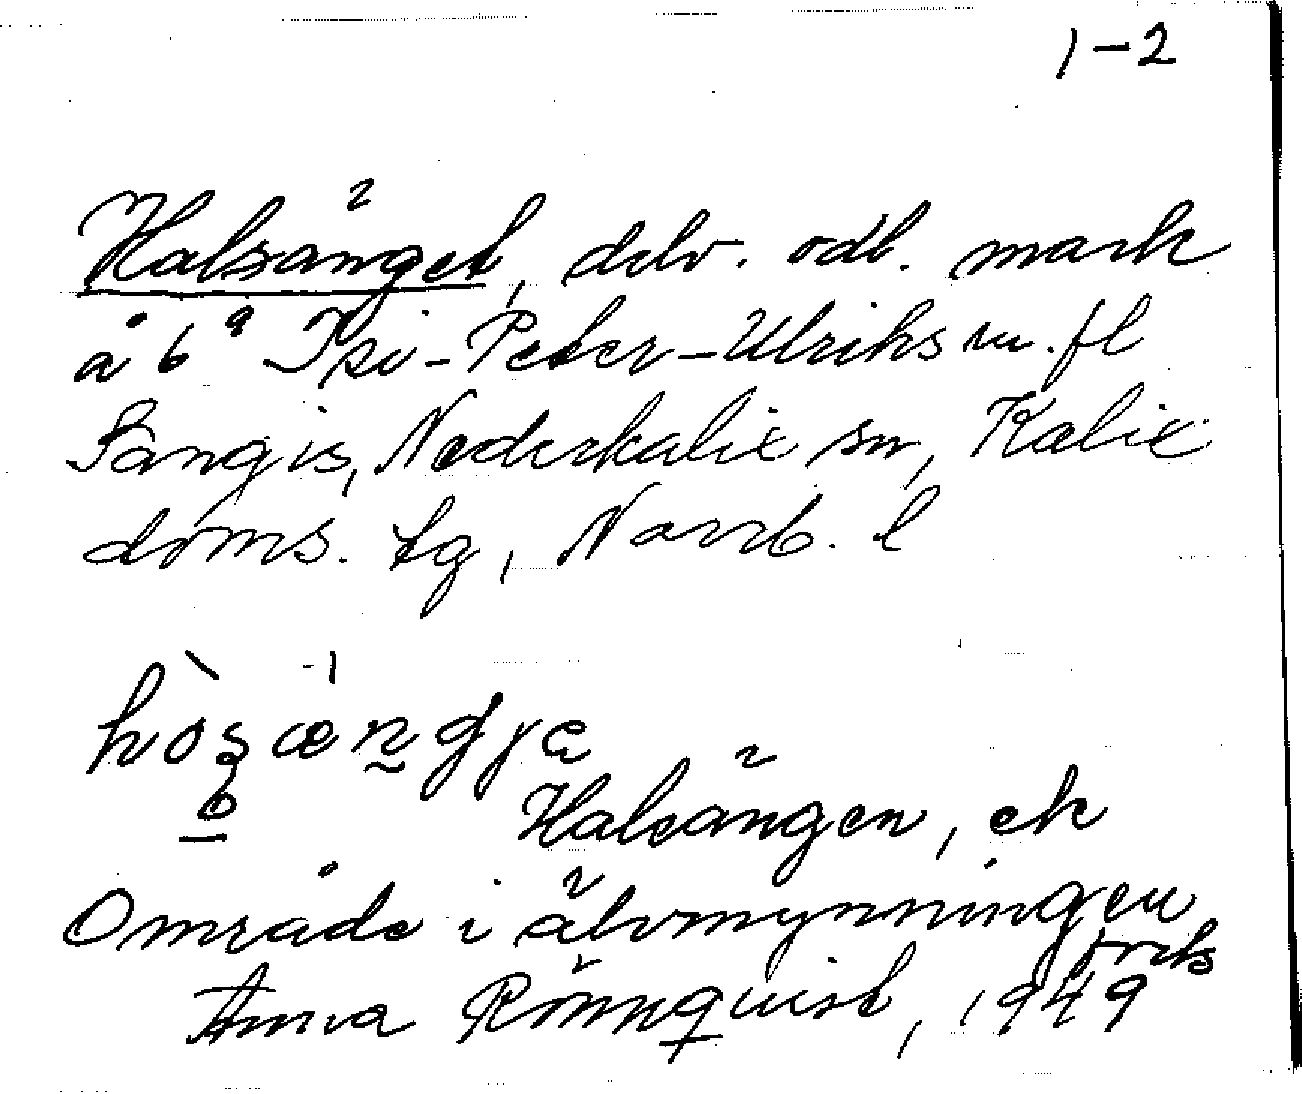 1-2
Halsänget, delv. odl. mark
å 6ª Isi-Peter-Ulriks m.fl
Sangis, Nederkalix sn, Kalix
doms. tg, Norrb. l
Halsängen, ek
Område i älvmynningen
Anna Rönnquist, 1949